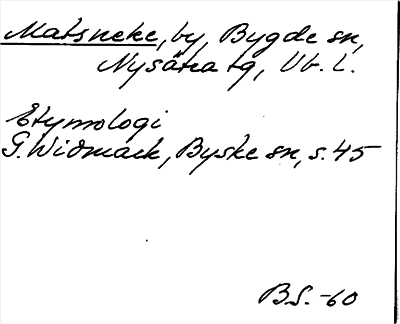 Matsneke, by, Bygde sn,
Nysätra tg, Vb. l.
Etymologi
G. Widmark, Byske sn, s. 45
B.S. -60